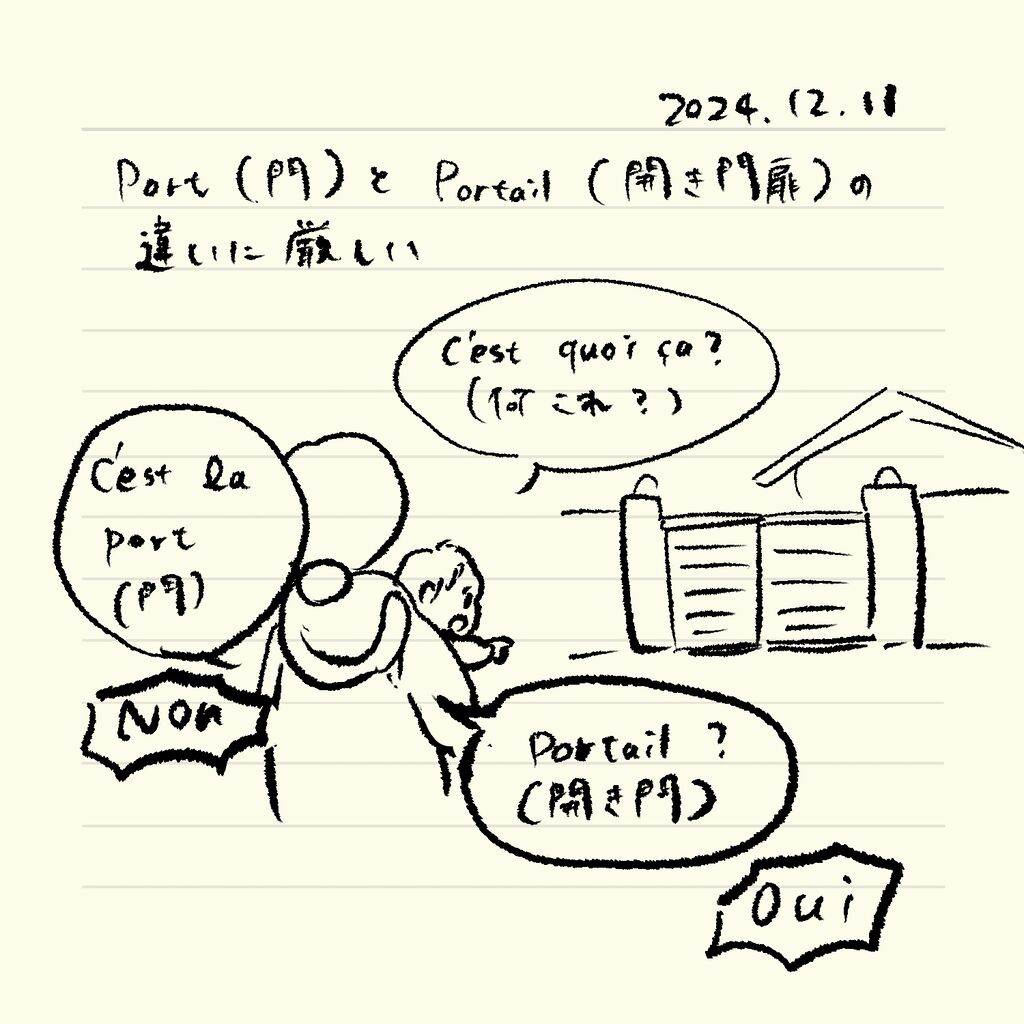 2024.12.11
Port (門) と Portail (開き門扉) の
違いに厳しい
C'est quoi ça?
(何これ?)
C'est la
port
(門)
Non
Portail ?
(開き門)
Oui